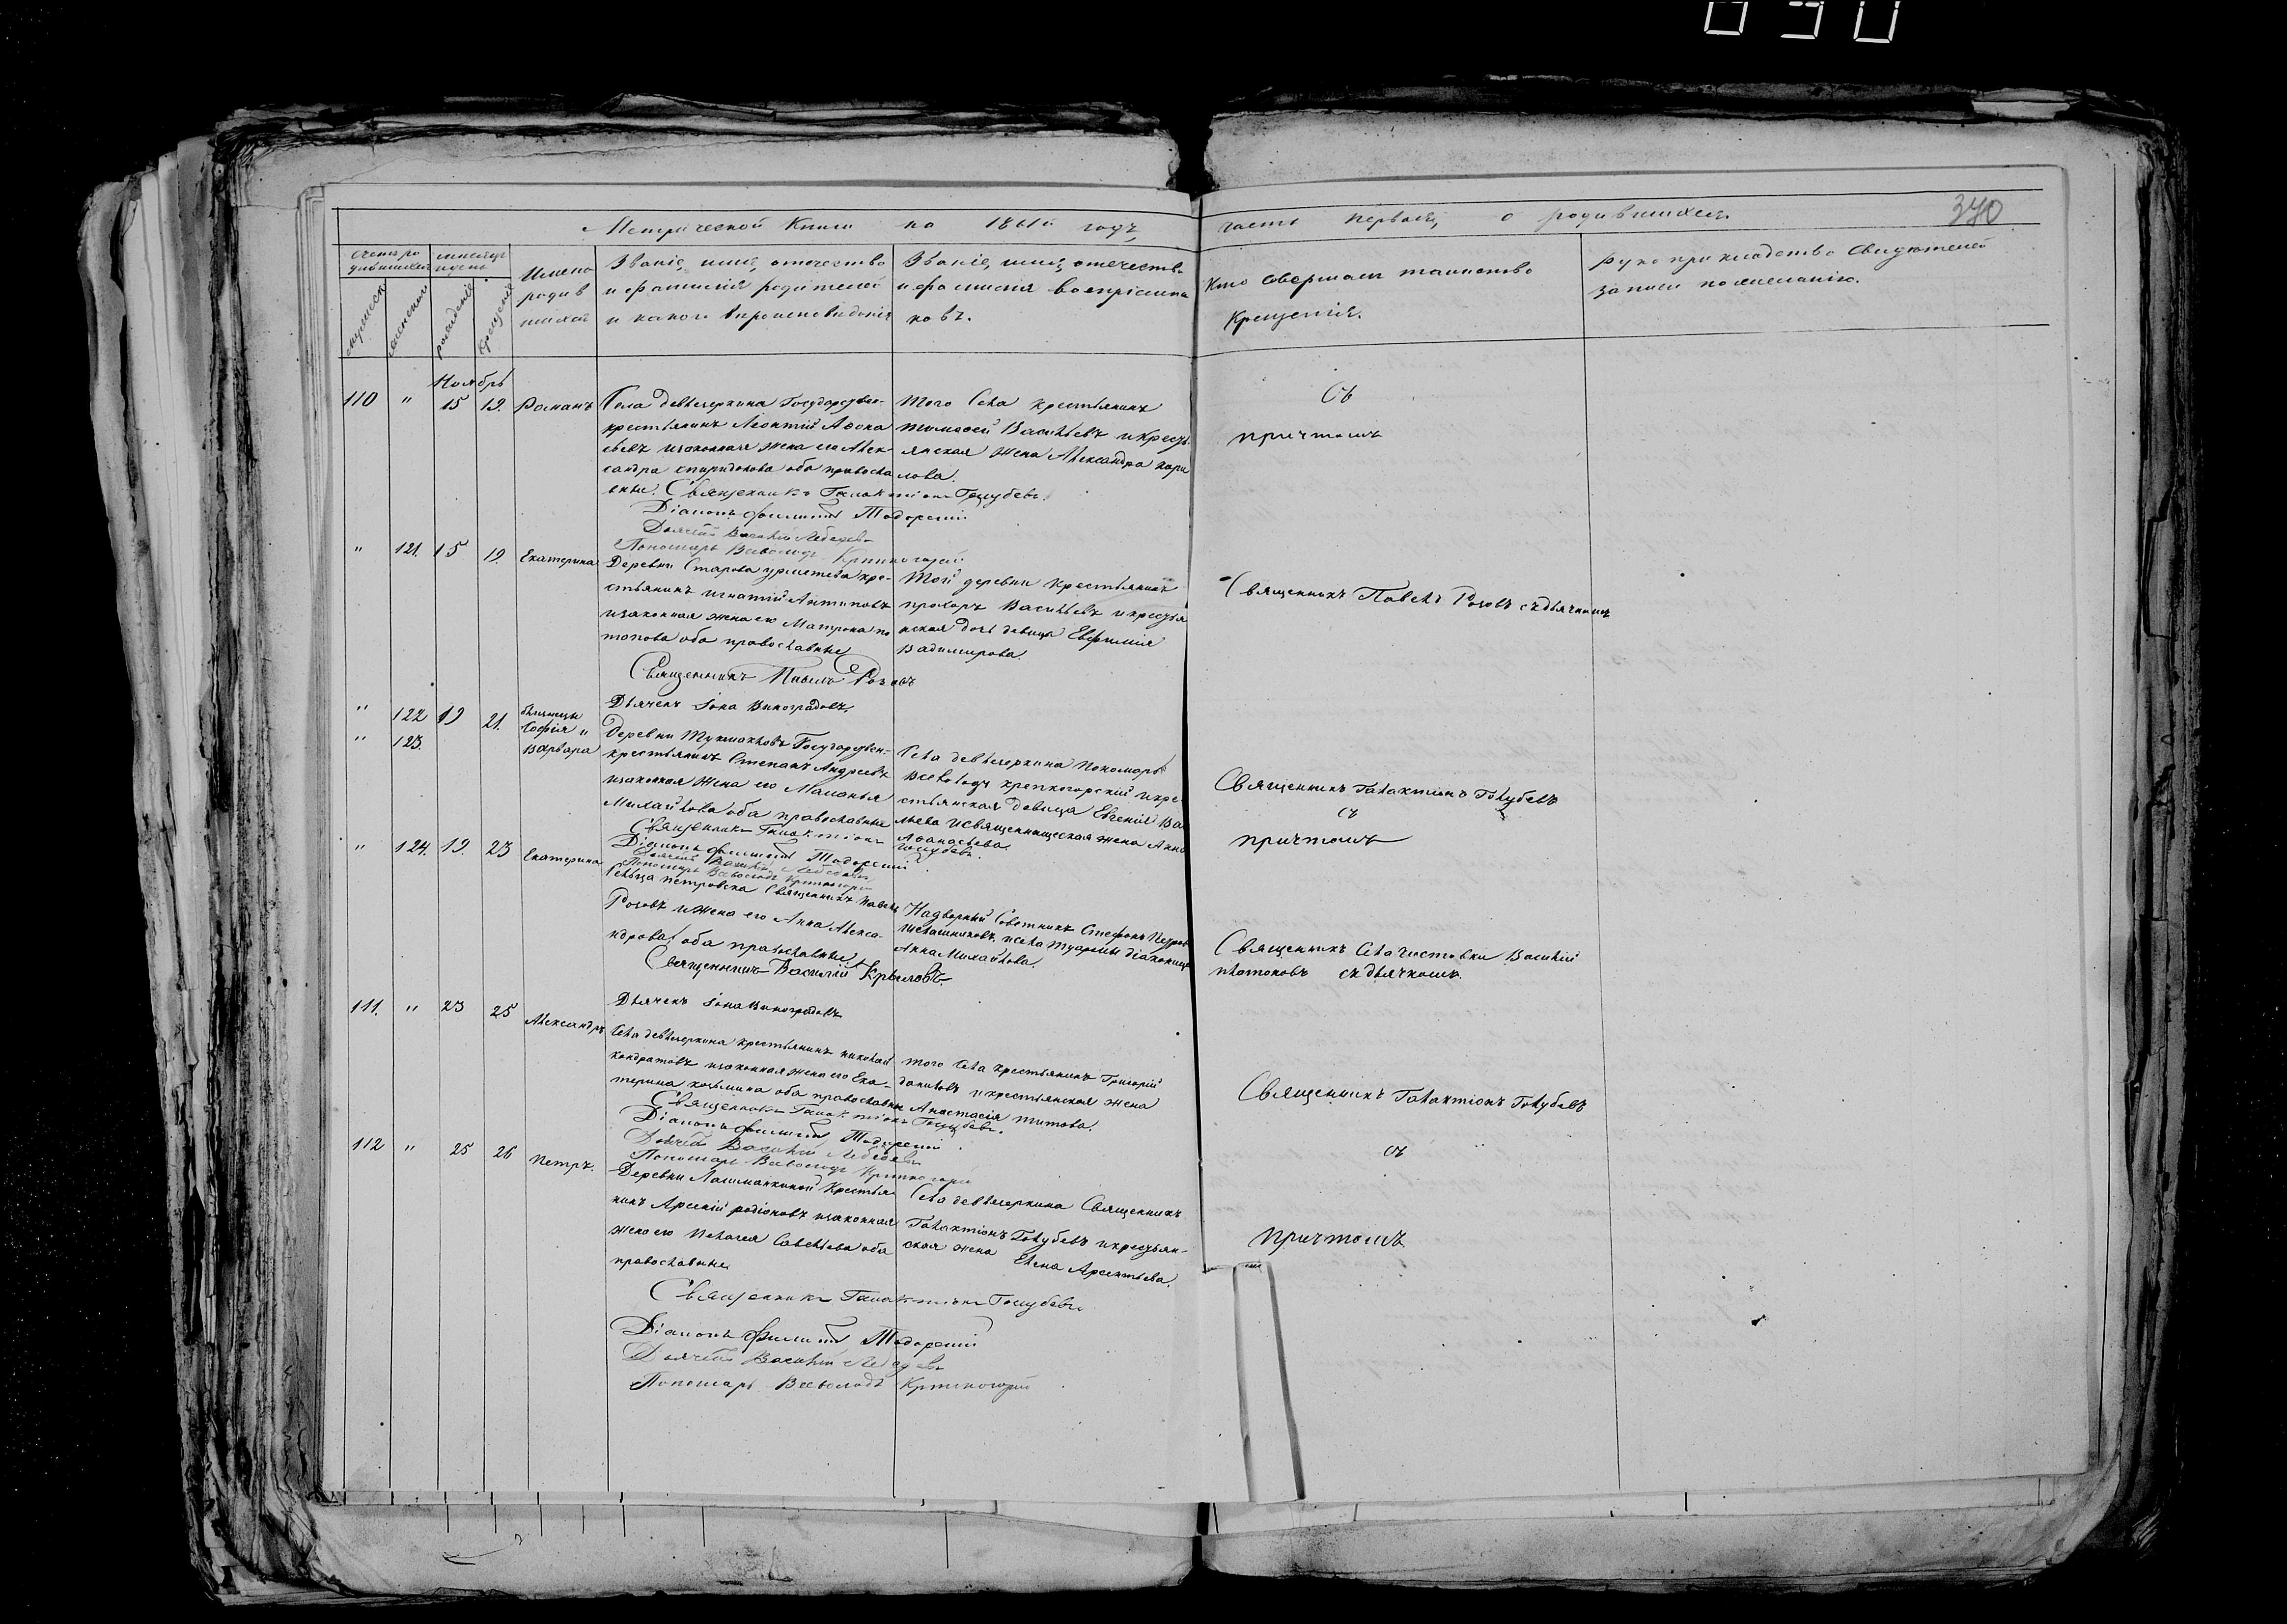 Метрической Книги на 1861й годъ,
часть первая, о родившихся.
370
Счетъ родившихся
мужеска
женска
месяцъ и день
рожденiе
крещенiе
Имена
родив
шихся
Званiе, имя, отечество
и фамилiя родителей
и какого вероисповеданiя
Званiе, имя, отечество
и фамилiя воспрiемни
ковъ.
Кто совершалъ таинство
Крещенiя.
Рукоприкладство свидетелей
записи по желанiю.
Ноябрь
110 " 15 19. Романъ
Села девлезеркина Государствен-
крестьянинъ Леонтiй Афона
сьевъ и законная жена его Алек-
сандра спиридонова оба православ
ные. Священникъ Галактiонъ Голубевъ.
Дiаконъ Филиппъ
Дьячекъ Василiй Лебедевъ
Пономарь Всеволодъ Крепкогорскiй
Того Села крестьянинъ
тимофей Васильевъ и Кресть
янская жена Александра гари
лова.
Съ
причтомъ
" 121. 15 19. Екатерина
Деревни Старова урметева кре-
стьянинъ игнатiй Антиповъ
и законная жена его Матрона по
топова оба православные
Священникъ Павелъ Розовъ
Дьячекъ Iона Виноградовъ.
Той деревни крестьянинъ
прохоръ Васильевъ и кресть
нская дочь девица Евфимiя
Вадимирова.
Священникъ Павелъ Розовъ съ дьячкомъ
" 122 19 21. близнецы
Софiя "
" 123. Варвара
Деревни Государствен-
крестьянинъ Степанъ Андреевъ
и законная жена его Маланья
Михайлова оба православные
Священникъ Галактiонъ Голубевъ.
Дiаконъ Филиппъ
Дьячекъ Василiй Лебедевъ
Пономарь Всеволодъ Крепкогорскiй
Села девлезеркина пономарь
Всеволодъ крепкогорскiй и кре-
стьянская девица Евгенiя Ва
льева и священническая жена Анна
Афанасьева.
Священникъ Галактiонъ Голубевъ
съ
причтомъ
" 124. 19. 23 Екатерина
Сельца петровска Священникъ Павелъ
Розовъ и жена его Анна Алекса-
ндрова оба православные
Священникъ Василiй Крыловъ
Дьячекъ Iона Виноградовъ
Надворный Советникъ Стефанъ Петровъ
и села дiаконица
Анна Михайлова.
Священникъ Села Чистовки Василiй
платоновъ съ дьячкомъ.
111. " 23 25 Александръ
Села девлезеркина крестьянинъ николай
кондратовъ и законная жена его Ека-
терина козьмина оба православные
Священникъ Галактiонъ Голубевъ.
Дiаконъ Филиппъ
Дьячекъ Василiй Лебедевъ
Пономарь Всеволодъ Крепкогорскiй
того Села крестьянинъ Григорiй
даниловъ и крестьянская жена
Анастасiя титова.
Священникъ Галактiонъ Голубевъ
съ
причтомъ
112 " 25 26 Петръ.
Деревни крестья
нинъ Арсенiй родiоновъ и законная
жена его Пелагея Савельева оба
православные
Священникъ Галактiонъ Голубевъ.
Дiаконъ Филиппъ
Дьячекъ Василiй Лебедевъ
Пономарь Всеволодъ Крепкогорскiй
Села девлезеркина Священникъ
Галактiонъ Голубевъ и крестьян-
ская жена Елена Арсентьева.